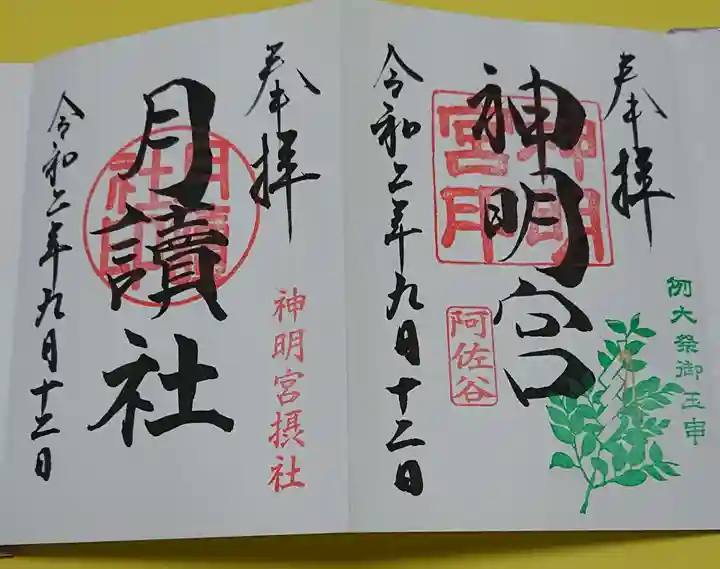 奉拝
例大祭御玉串
神明宮
神明宮印
阿佐谷
令和二年九月十二日
奉拝
神明宮摂社
月讀社
月讀社印
令和二年九月十二日